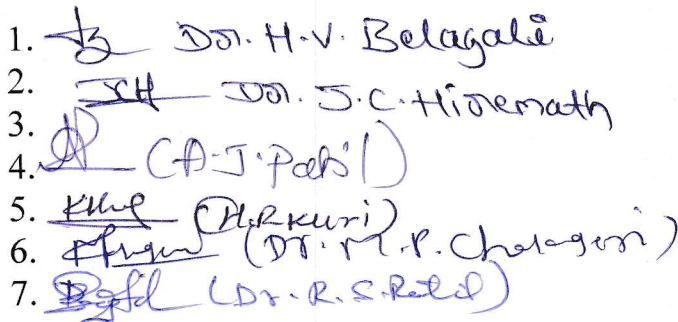 1. Dr. H.V. Belagali
2. JCH Dr. J.C. Hiremath
3.
4. (A.J. Patil)
5. (H.R Kuri)
6. (Dr. M.P. Chalageri)
7. (Dr. R.S. Patil)